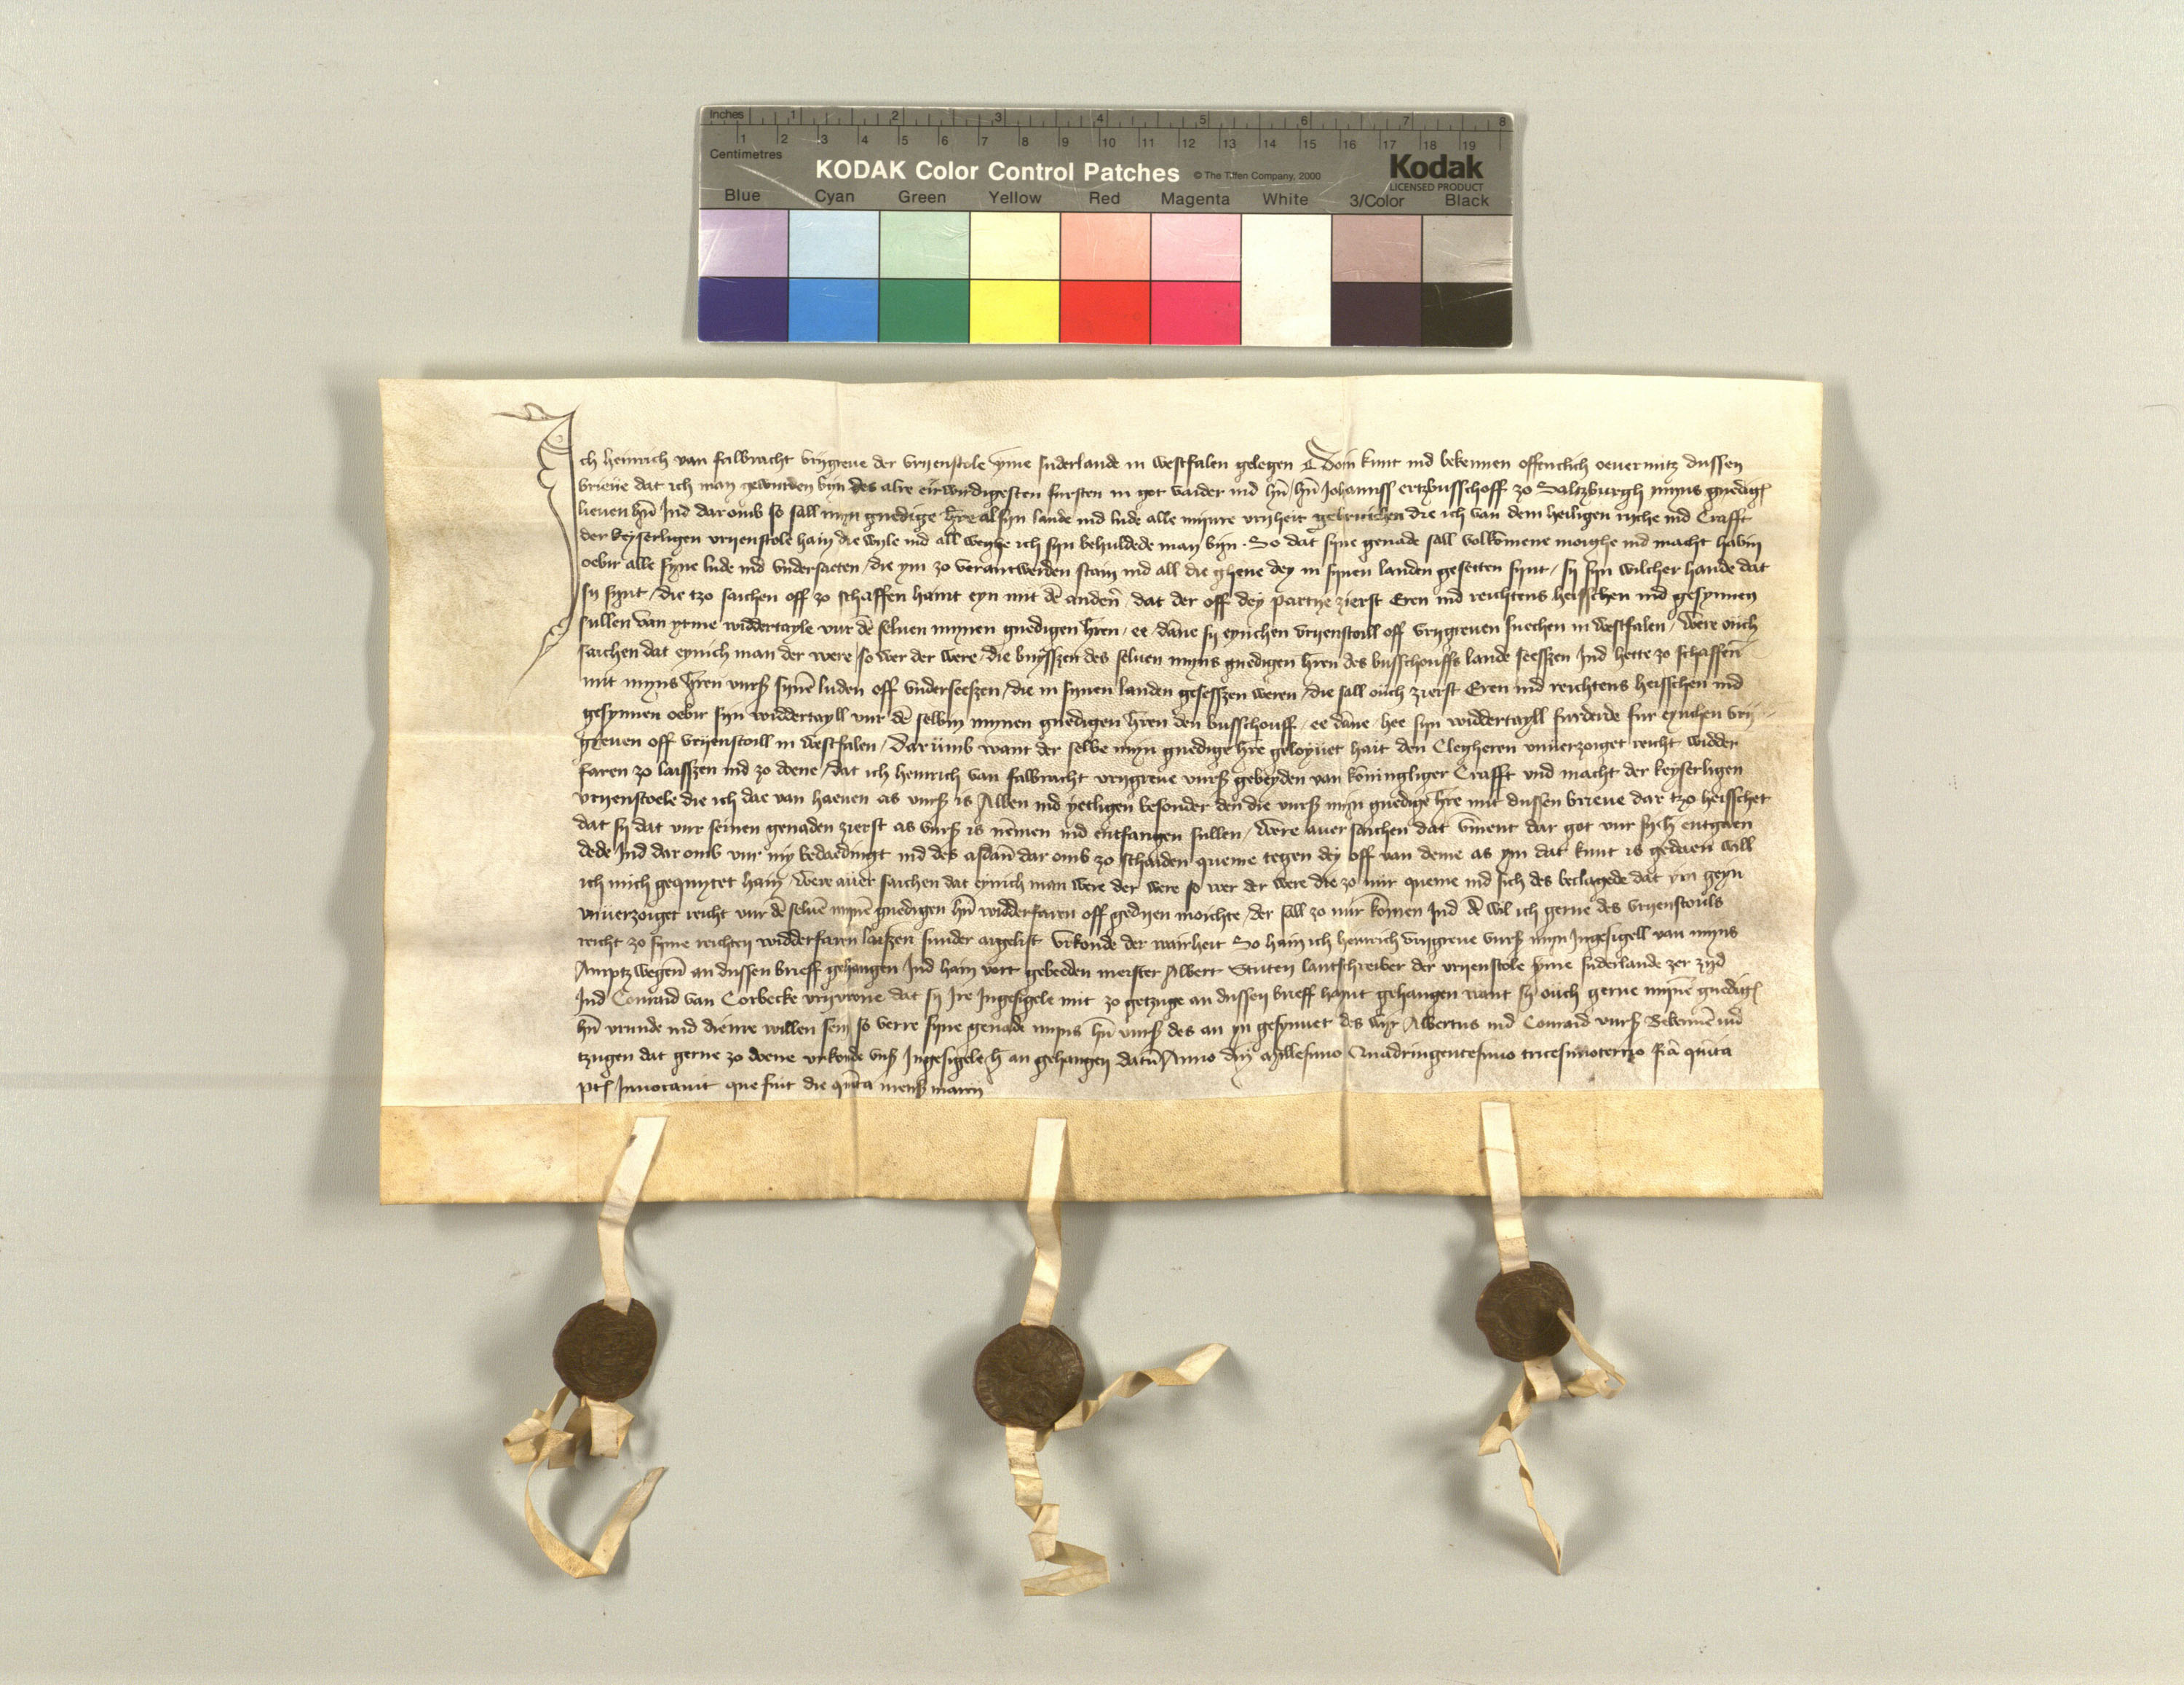 Inches 1 2 3 4 5 6 7 8
1 2 3 4 5 6 7 8 9 10 11 12 13 14 15 16 17 18 19
Centimetres
KODAK Color Control Patches © The Tiffen Company, 2000 Kodak
LICENSED PRODUCT
Blue Cyan Green Yellow Red Magenta White 3/Color Black
Ich heinrich van falbracht vrygreue der vryenstole yme suderlande in westfalen gelegen Doin kunt ind bekennen offentlich ouermitz dussen
brieue dat ich man gewurden byn des alre eirwirdigesten fursten in got vaider ind hn hn Johannss ertzbusschoff zo Saltzburgh myns gnedig
lieuen hn Ind dar omb so sall myn gnedige hre al syn lande ind lude alle mynre vryheit gebruichen die ich van dem heiligen ryche ind Crafft
der keyserligen vryenstole hain die wyle ind all weghe ich syn behuldede man byn. So dat syne genade sall volkomene moighe ind macht havin
oebir alle syne lude ind vndersaeten / die ym zo verantwerden stain ind all die ghene dey in synen landen gesetten synt / sy syn wilcher hande dat
sy synt / die tzo saichen off zo schaffen haint eyn mit de anden / dat der off dey partye zierst Eren ind reichtens heisschen ind gesynnen
sullen van yrme widdertayle vur de seluen mynen gnedigen hren / ee dane sy eynchen vryenstoill off vrygreuen suechen in westfalen / Were ouch
saichen dat eynich man der were so wer der were / die buyssen des seluen myns gnedigen hren des busschouffs lande seesszen Ind hette zo schaffen
mit myns hren vurß syne luden off vnderseeszen / die in synen landen gesesszen weren / die sall ouch zierst Eren ind reichtens heisschen ind
gesynnen oebir syn widdertayll vur de selbin mynen gnedigen hren den busschouff / ee dane / hee syn widdertayll furderde fur eynchen vry
greuen off vryenstoill in westfalen / Dar umb want der selve myn gnedige hre geloyuet hait den Clegheren vnuerzoiget reicht widder
faren zo laisszen ind zo doene / dat ich heinrich van falbracht vrygreue vurß gebeyden van koningliger Crafft vnd macht der keyserligen
vryenstoele die ich dae van haeuen as vurß is Allen ind yetligen besonder den die vurß myn gnedige hre mit dussen brieue dar tzo heisschet
dat sy dat vur seinen genaden zierst as vurß is nemen ind entfangen sullen / Were auer saichen dat yment dar got vur sy h entgaen
dede Ind dar omb vur my bedaedingt ind des asdan dar omb zo schaiden queme tegen dey off van deme as ym dat kunt is gedaen will
ich mich gequytet hain / Were auer saichen dat eynich man were der were so wer der were die zo mir queme ind sich des beclagede dat ym geyn
vnuerzoiget reicht vur de selue myne gnedigen hn widderfaren off gedyen moichte / der sall zo mir komen Ind de wil ich gerne des vryenstouls
reicht zo syme reichten widderfaren laeszen sunder argelist Vrkonde der wairheit So hain ich heinrich vrygreue vurß myn Ingesigell van myns
Amptz wegen an dussen brieff gehangen Ind hain vort gebeden meister Albert Stuten lantschreiber der vryenstole yme suderlande zer zyd
Ind Conraid van Corbecke vryvrone dat sy Ire Ingesigele mit zo getzuge an dussen brieff haynt gehangen want sy ouch gerne myne gnedig
hn vrunde ind dienre willen sein so verre syne genade myns hn vurß des an yn gesynnet des wyr Albertus ind Conraid vurß Bekennen ind
tzugen dat gerne zo doene vrkonde vnß Ingesigele h an gehangen datu Anno dni Millesimo Quadringentesimo tricesimotertio fia quita
pt Inuocauit que fuit die quita mensß marcij